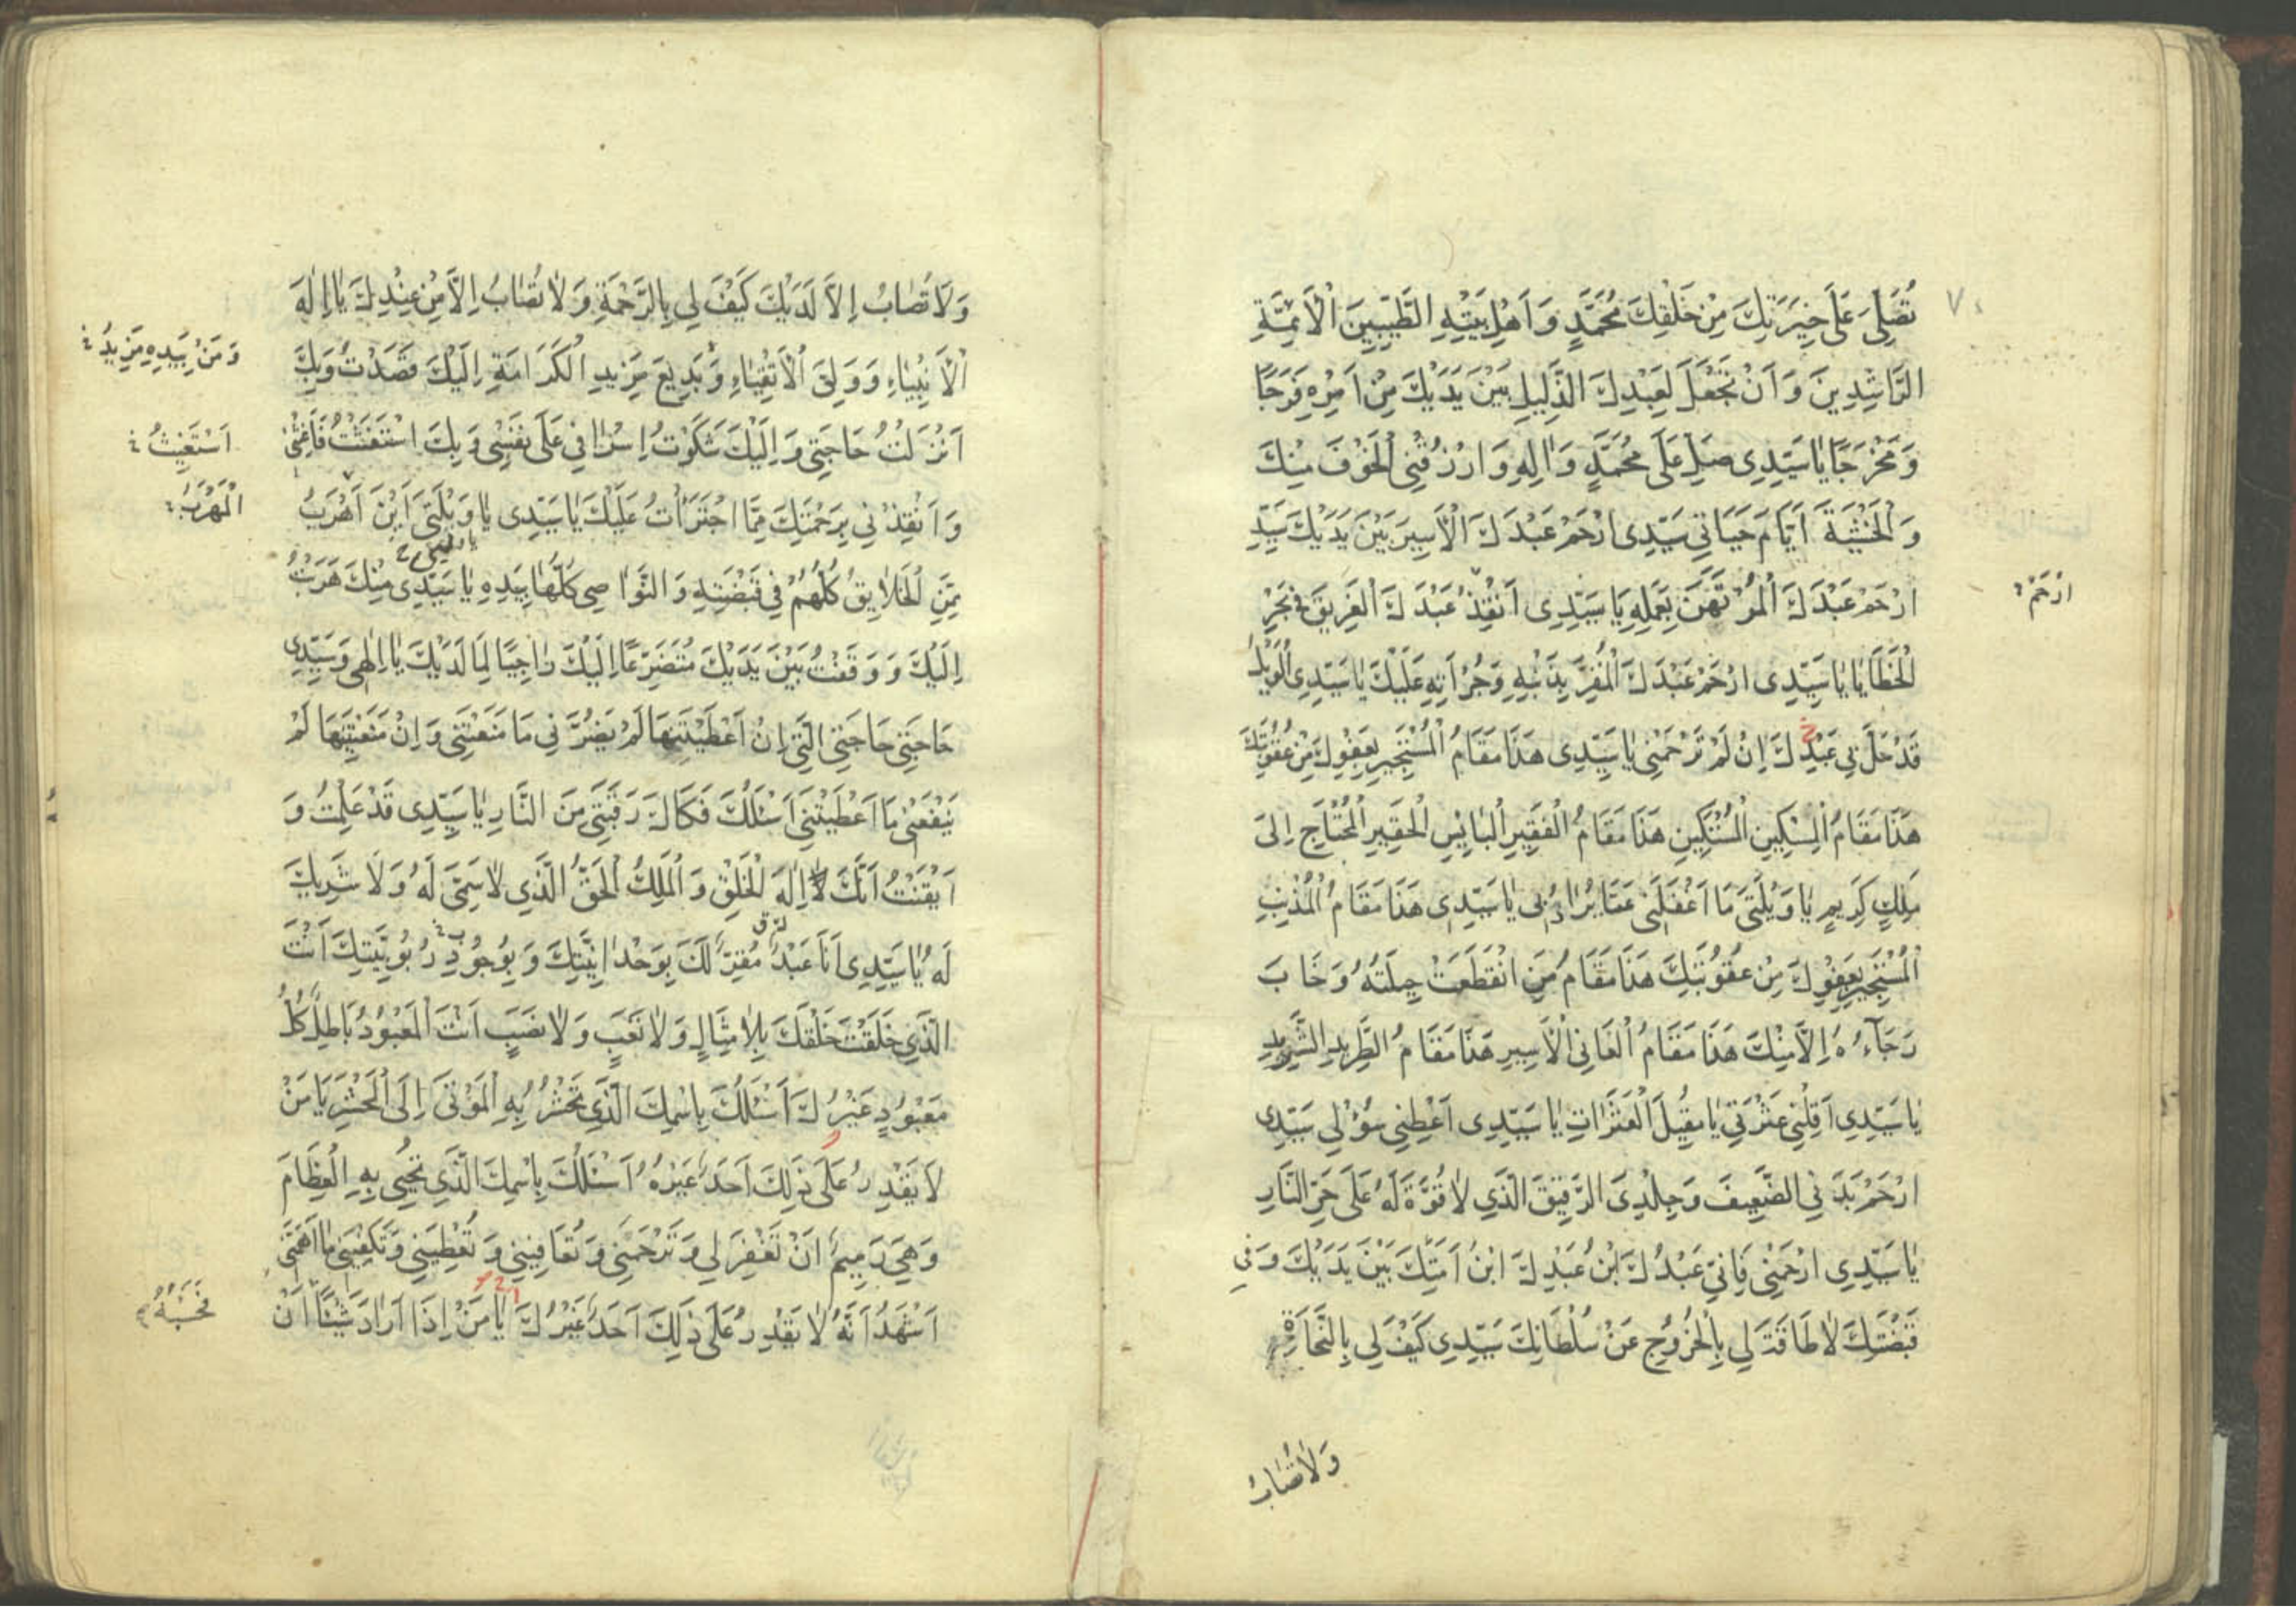 تُصَلِّىَ عَلَى خِيَرَتِكَ مِنْ خَلْقِكَ مُحَمَّدٍ وَ اَهْلِ بَيْتِهِ الطَّيِّبِينَ الْاَئِمَّةِ
الرَّاشِدِينَ وَ اَنْ تَجْعَلَ لِعَبْدِكَ الذَّلِيلِ بَيْنَ يَدَيْكَ مِنْ اَمْرِهِ فَرَجًا
وَ مَخْرَجًا يَا سَيِّدِى صَلِّ عَلَى مُحَمَّدٍ وَ اٰلِهِ وَ ارْزُقْنِى الْخَوْفَ مِنْكَ
وَ الْخَشْيَةَ اَيَّامَ حَيَاتِى سَيِّدِى ارْحَمْ عَبْدَكَ الْاَسِيرَ بَيْنَ يَدَيْكَ سَيِّدِ
ارْحَمْ عَبْدَكَ الْمُرْتَهَنَ بِعَمَلِهِ يَا سَيِّدِى اَنْقِذْ عَبْدَكَ الْغَرِيقَ فِى بَحْرِ
ارْحَمْ
الْخَطَايَا يَا سَيِّدِى ارْحَمْ عَبْدَكَ الْمُقِرَّ بِذَنْبِهِ وَ جُرْاَتِهِ عَلَيْكَ يَا سَيِّدِى الْوَيْلُ
قَدْ حَلَّ بِى عَبْدِكَ اِنْ لَمْ تَرْحَمْنِى يَا سَيِّدِى هَذَا مَقَامُ الْمُسْتَجِيرِ بِعَفْوِكَ مِنْ عُقُوبَتِكَ
هَذَا مَقَامُ الْمِسْكِينِ الْمُسْتَكِينِ هَذَا مَقَامُ الْفَقِيرِ الْبَايِسِ الْحَقِيرِ الْمُحْتَاجِ اِلَىَ
مَلِكٍ كَرِيمٍ يَا وَيْلَتَىَ مَا اَغْفَلَنِى عَمَّا يُرَادُ بِى يَا سَيِّدِى هَذَا مَقَامُ الْمُذْنِبِ
الْمُسْتَجِيرِ بِعَفْوِكَ مِنْ عُقُوبَتِكَ هَذَا مَقَامُ مَنِ انْقَطَعَتْ حِيلَتُهُ وَ خَابَ
رَجَآءُهُ اِلَّا مِنْكَ هَذَا مَقَامُ الْعَانِى الْاَسِيرِ هَذَا مَقَامُ الطَّرِيدِ الشَّرِيدِ
يَا سَيِّدِى اَقِلْنِى عَثْرَتِى يَا مُقِيلَ الْعَثَرَاتِ يَا سَيِّدِى اَعْطِنِى سُؤْلِى سَيِّدِى
ارْحَمْ بَدَنِى الضَّعِيفَ وَ جِلْدِىَ الرَّقِيقَ الَّذِى لَا قُوَّةَ لَهُ عَلَى حَرِّ النَّارِ
يَا سَيِّدِى ارْحَمْنِى فَاِنِّى عَبْدُكَ ابْنُ عَبْدِكَ ابْنُ اَمَتِكَ بَيْنَ يَدَيْكَ وَ فِى
قَبْضَتِكَ لَا طَاقَةَ لِى بِالْخُرُوجِ عَنْ سُلْطَانِكَ سَيِّدِى كَيْفَ لِى بِالنَّجَاةِ
وَلَا تُصَابُ
وَ لَا تُصَابُ اِلَّا لَدَيْكَ كَيْفَ لِى بِالرَّحْمَةِ وَ لَا تُصَابُ اِلَّا مِنْ عِنْدِكَ يَا اِلٰهَ
الْاَنْبِيَاءِ وَ وَلِىَّ الْاَتْقِيَاءِ وَ بَدِيعَ مَزِيدِ الْكَرَامَةِ اِلَيْكَ قَصَدْتُ وَ بِكَ
وَ مَنْ بِيَدِهِ مَزِيدُ
اَنْزَلْتُ حَاجَتِى وَ اِلَيْكَ شَكَوْتُ اِسْرَافِى عَلَى نَفْسِى وَ بِكَ اسْتَغَثْتُ فَاَغِثْنِى
اَسْتَغِيثُ
وَ اَنْقِذْنِى بِرَحْمَتِكَ مِمَّا اجْتَرَأْتُ عَلَيْكَ يَا سَيِّدِى يَا وَيْلَتَى اَيْنَ اَهْرَبُ
الْمَهْرَبُ
مِمَّنِ الْخَلَايِقُ كُلُّهُمْ فِى قَبْضَتِهِ وَ النَّوَاصِى كُلُّهَا بِيَدِهِ يَا سَيِّدِى مِنْكَ هَرَبْتُ
اِلَيْكَ وَ وَقَفْتُ بَيْنَ يَدَيْكَ مُتَضَرِّعًا اِلَيْكَ رَاجِيًا لِمَا لَدَيْكَ يَا اِلٰهِى وَ سَيِّدِى
حَاجَتِى حَاجَتِى الَّتِى اِنْ اَعْطَيْتَنِيهَا لَمْ يَضُرَّنِى مَا مَنَعْتَنِى وَ اِنْ مَنَعْتَنِيهَا لَمْ
يَنْفَعْنِى مَا اَعْطَيْتَنِى اَسْئَلُكَ فَكَاكَ رَقَبَتِى مِنَ النَّارِ يَا سَيِّدِى قَدْ عَلِمْتُ وَ
اَيْقَنْتُ اَنَّكَ اِلٰهَ الْخَلْقِ وَ الْمَلِكُ الْحَقُّ الَّذِى لَا سَمِىَّ لَهُ وَ لَا شَرِيكَ
لَهُ يَا سَيِّدِى اَنَا عَبْدُ مُقِرٌّ لَكَ بِوَحْدَانِيَّتِكَ وَ بِوُجُودِ رُبُوبِيَّتِكَ اَنْتَ
الَّذِى خَلَقْتَ خَلْقَكَ بِلَا مِثَالٍ وَ لَا تَعَبٍ وَ لَا نَصَبٍ اَنْتَ الْمَعْبُودُ بَاطِلٌ كُلُّ
مَعْبُودٍ غَيْرُكَ اَسْئَلُكَ بِاسْمِكَ الَّذِى تَحْشُرُ بِهِ الْمَوْتَى اِلَى الْمَحْشَرِ يَا مَنْ
لَا يَقْدِرُ عَلَى ذَلِكَ اَحَدٌ غَيْرُهُ اَسْئَلُكَ بِاسْمِكَ الَّذِى تُحْيِى بِهِ الْعِظَامَ
وَ هِىَ رَمِيمٌ اَنْ تَغْفِرَ لِى وَ تَرْحَمَنِى وَ تُعَافِيَنِى وَ تُعْطِيَنِى وَ تَكْفِيَنِى مَا اَهَمَّنِى
اَشْهَدُ اَنَّهُ لَا يَقْدِرُ عَلَى ذَلِكَ اَحَدٌ غَيْرُكَ اَيَا مَنْ اِذَا اَرَادَ شَيْئًا اَنْ